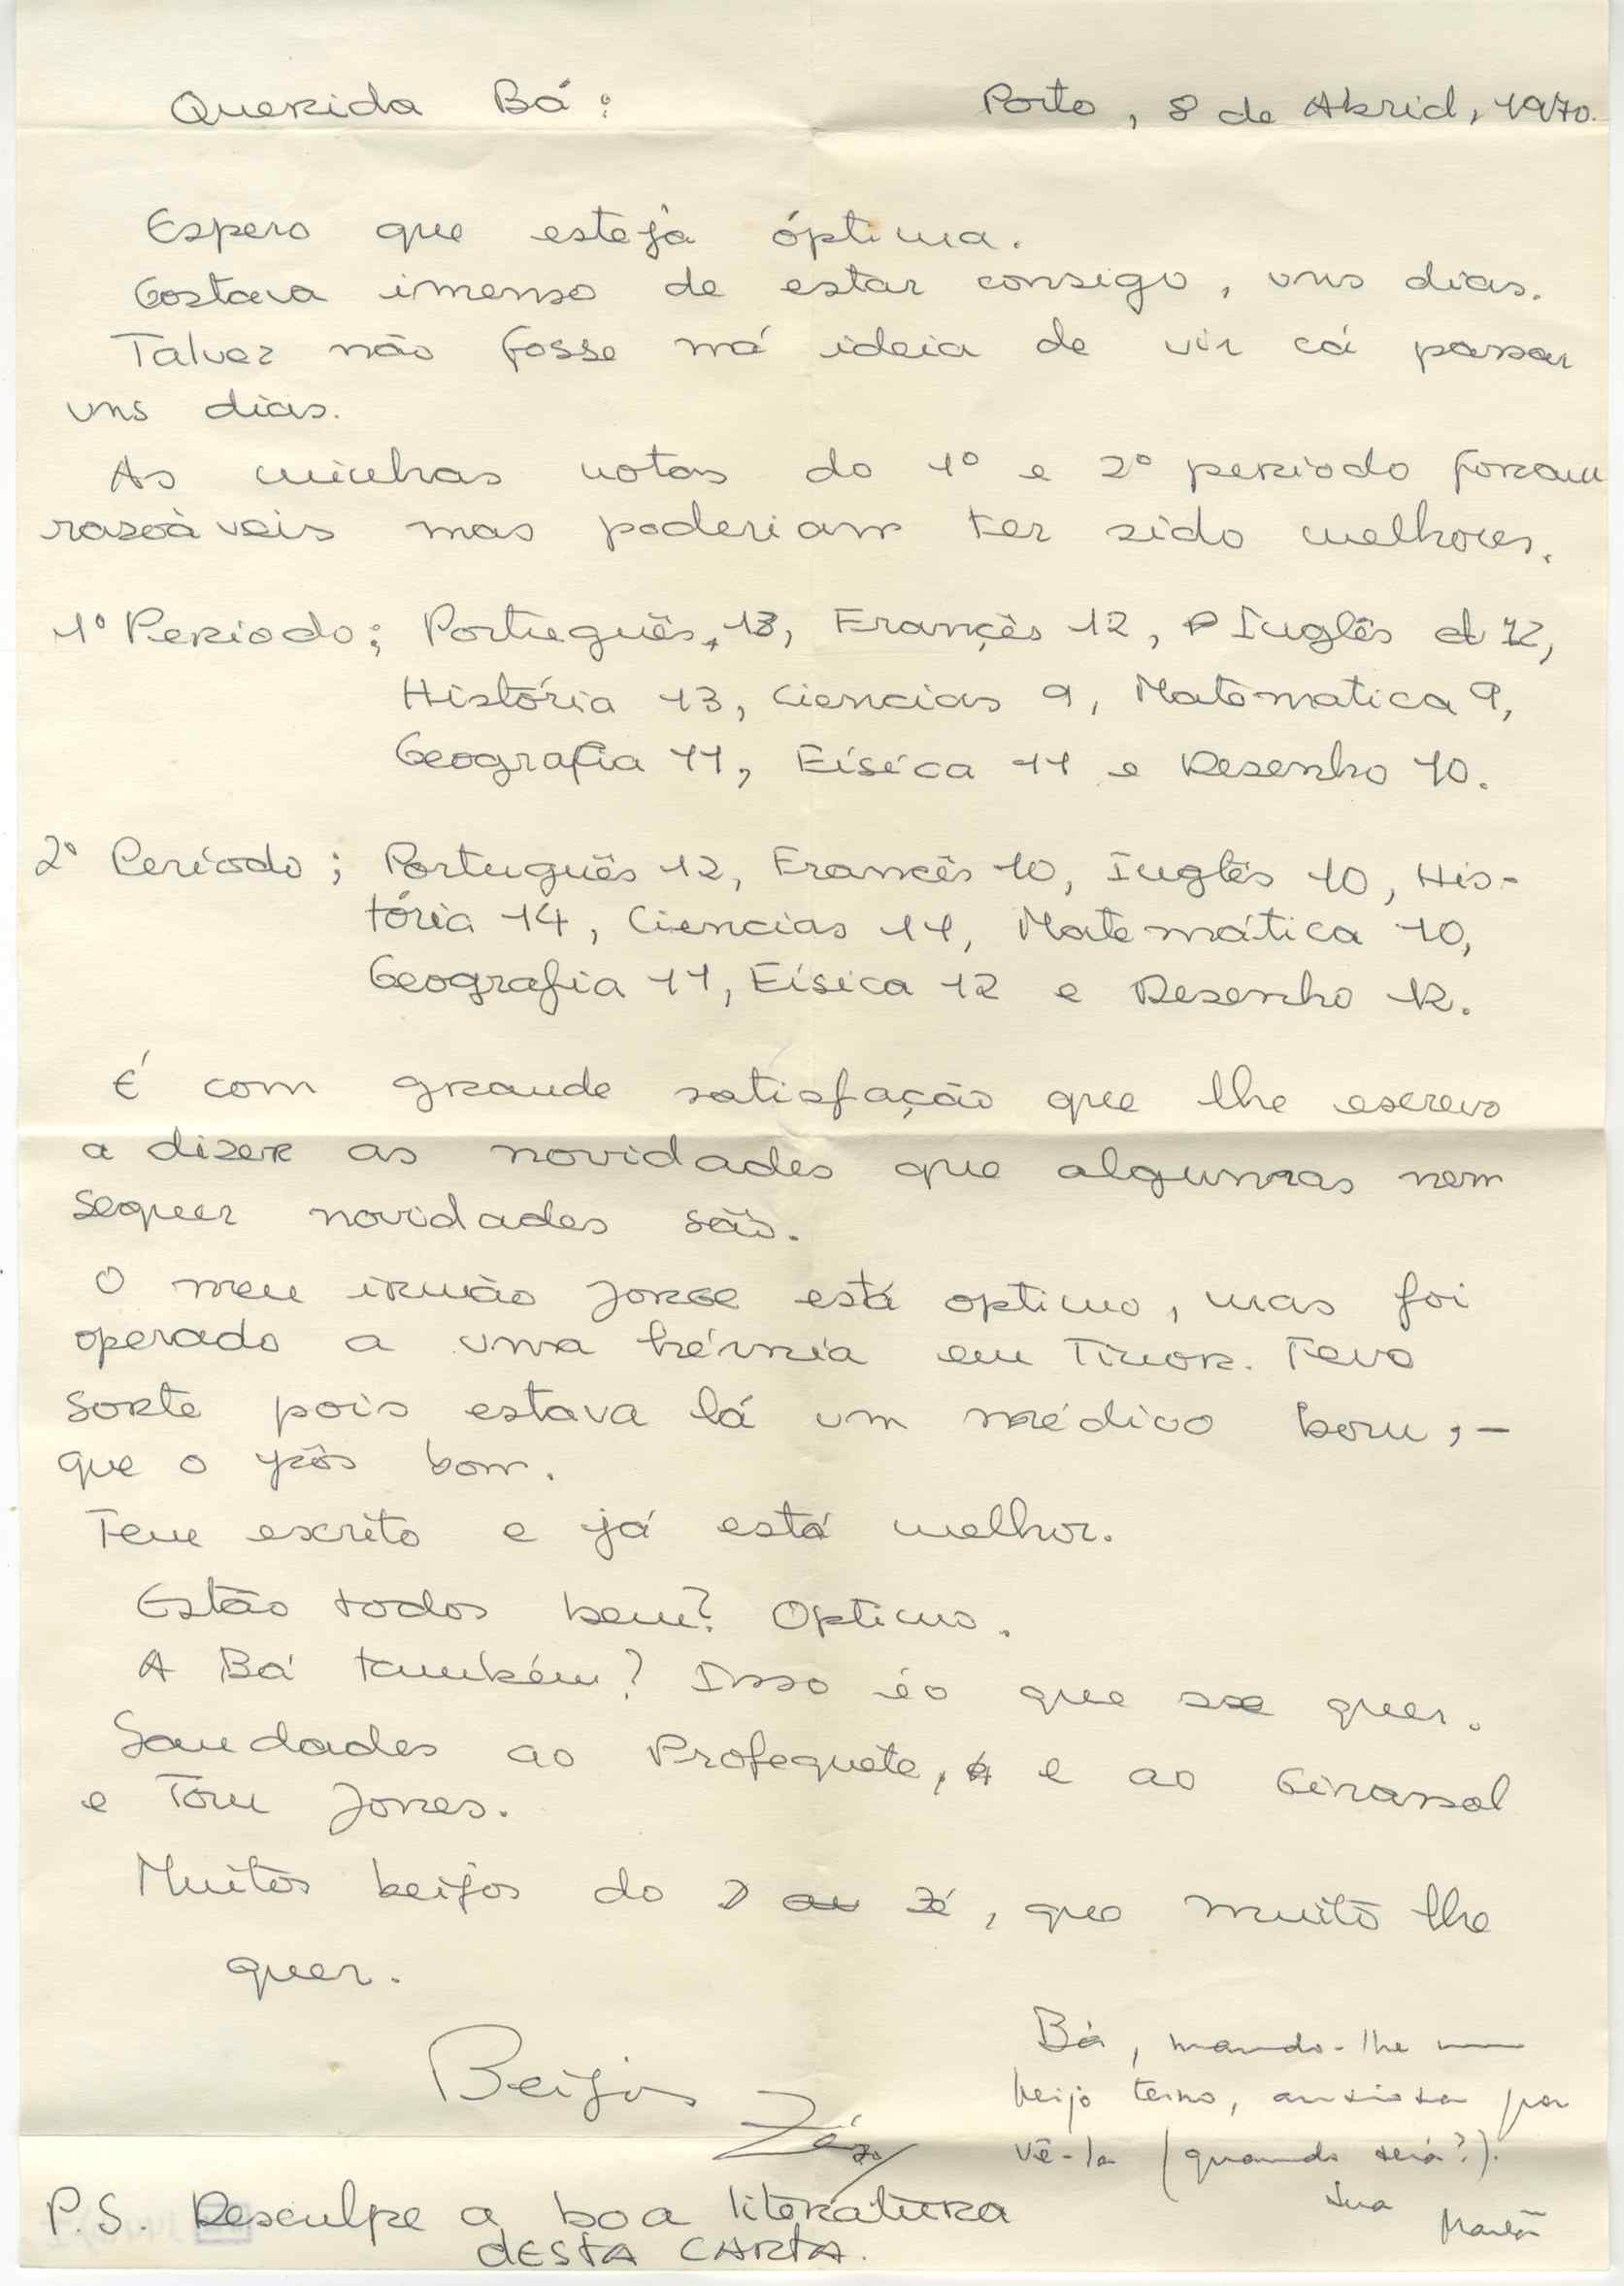 Querida Bá: Porto, 8 de Abrid, 1970.
Espero que esteja óptima.
Gostava imenso de estar consigo, uns dias.
Talvez não fosse má ideia de vir cá passar
uns dias.
As minhas notas do 1º e 2º periodo foram
razoàveis mas poderiam ter sido melhores.
1º Periodo; Português, 13, Françês 12, Inglês 12,
História 13, Ciencias 9, Matematica 9,
Geografia 11, Física 11 e Desenho 10.
2º Período; Português 12, Francês 10, Inglês 10, His-
tória 14, Ciencias 11, Matemática 10,
Geografia 11, Física 12 e Desenho 12.
É com grande satisfação que lhe escrevo
a dizer as novidades que algumas nem
sequer novidades são.
O meu irmão Jorge está optimo, mas foi
operado a uma hérnia em Timor. Teve
sorte pois estava lá um médico bom, -
que o pôs bom.
Tem escrito e já está melhor.
Estão todos bem? Optimo.
A Bá também? Isso é o que se quer.
Saudades ao Profequete, e ao Girassol
e Tom Jones.
Muitos beijos do Zé, que muito lhe
quer.
Beijos
Zé
Bá, mando-lhe um
beijo terno, ansiosa por
vê-la (quando será?).
Sua
P.S. Desculpe a boa literatura
DESTA CARTA.